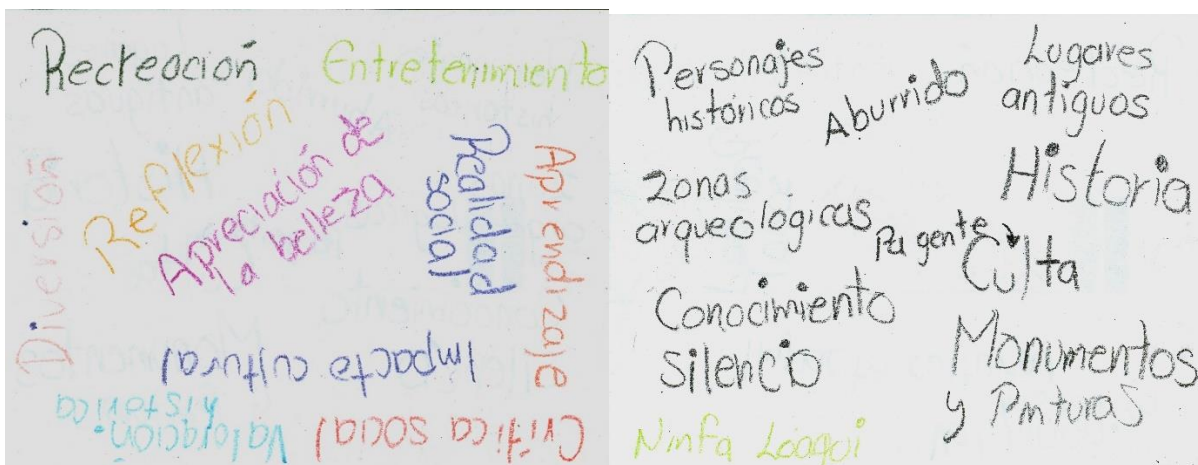 Recreación
Entretenimiento
Diversión
Reflexión
Apreciación de
la belleza
Realidad
social
Aprendizaje
Impacto cultural
Valoración
historica
Crítica social
Personajes
históricos
Aburrido
Lugares
antiguos
Historia
zonas
arqueologicas
Pa gente
Culta
Conocimiento
Silencio
Monumentos
y Pinturas
Ninfa Loaqui